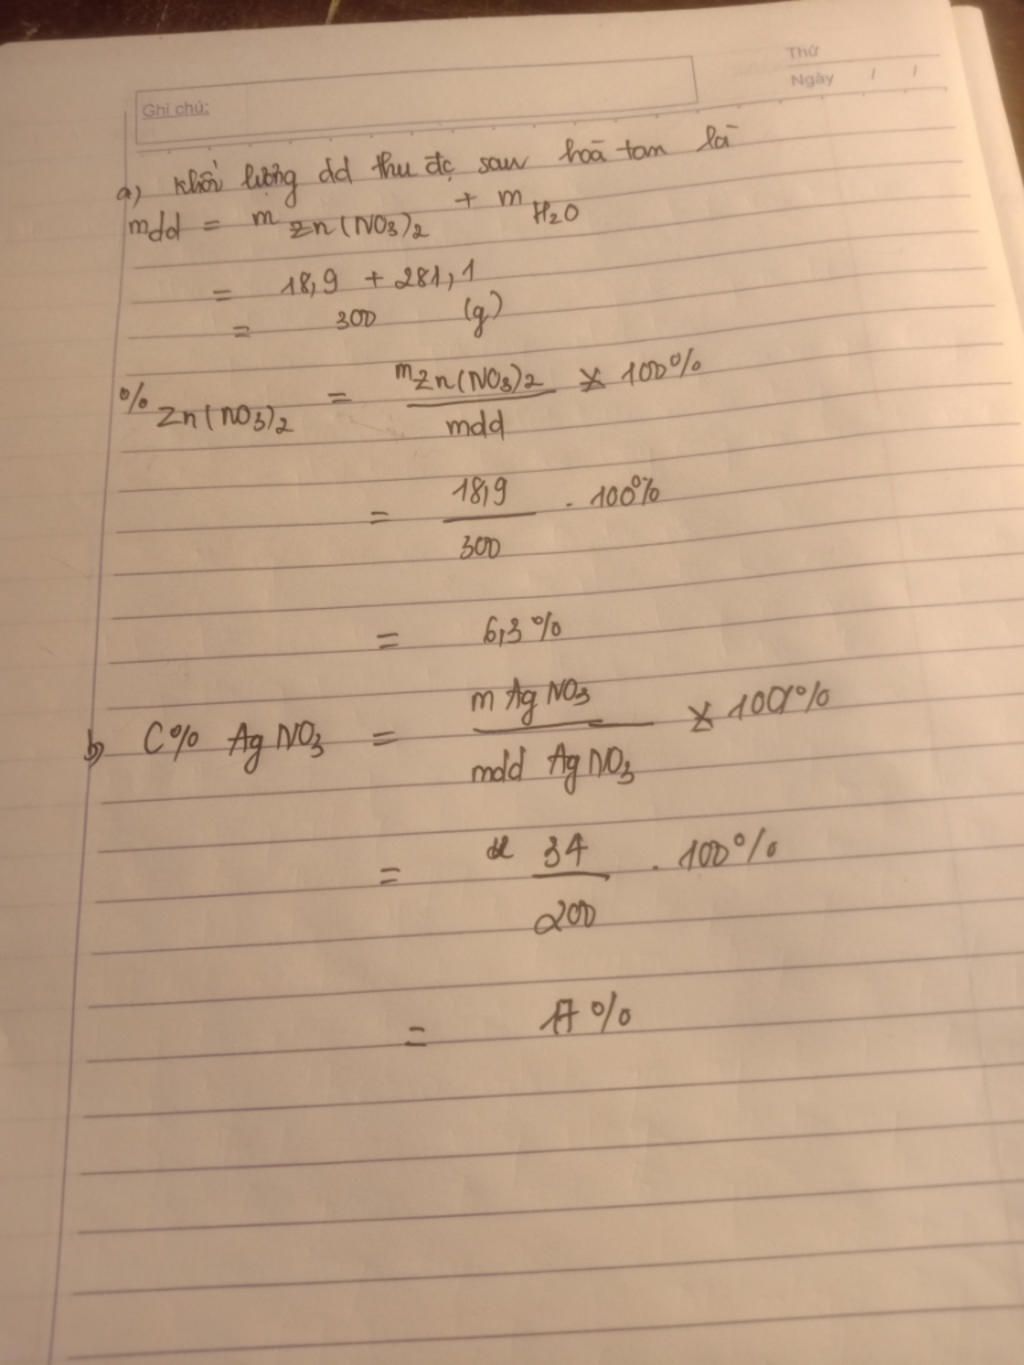 Thứ
Ngày / /
Ghi chú:
a) Khối lượng dd thu đc sau hoà tan là
mdd = m Zn(NO3)2 + m H2O
= 18,9 + 281,1
= 300 (g)
% Zn(NO3)2 = mZn(NO3)2 / mdd × 100%
= 18,9 / 300 . 100%
= 6,3%
b) C% AgNO3 = m AgNO3 / mdd AgNO3 × 100%
= 34 / 200 . 100%
= 17%